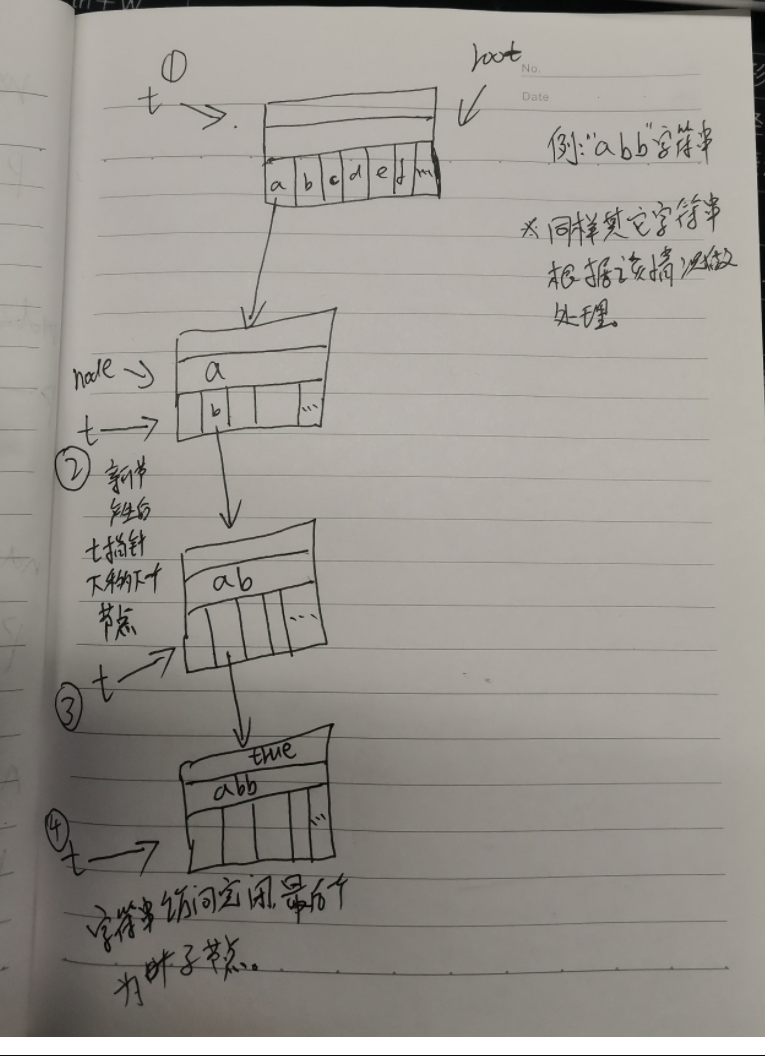 ①
t
root
No.
Date
a b c d e f ...
例:"abb"字符串
※同样其它字符串
根据该情况做
处理。
node
a
t
b ...
②
新节
产生后
t指针
下个
节点
ab
...
t
③
true
abb
...
④
t
字符串访问完闭,最后个
为叶子节点。